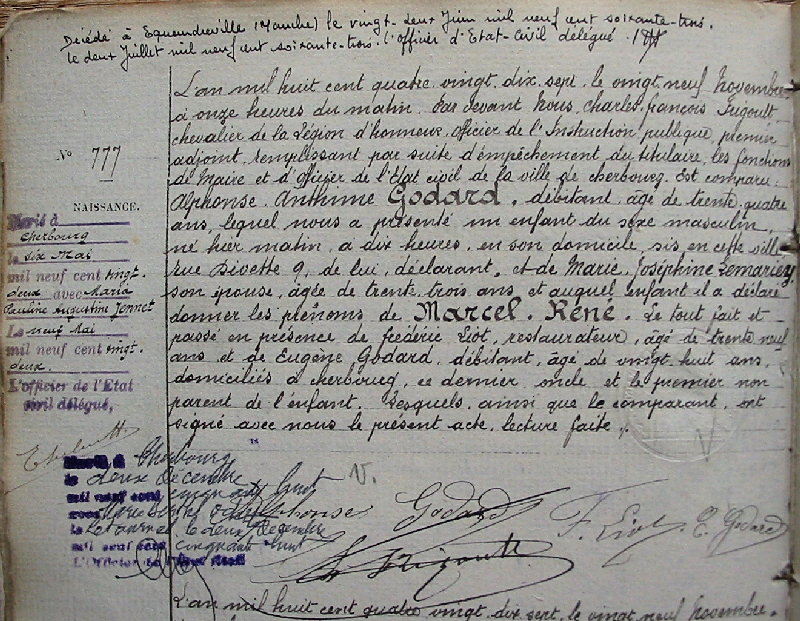 Décédé à Equeurdreville (Manche) le vingt-deux Juin mil neuf cent soixante-trois.
le deux Juillet mil neuf cent soixante-trois. l'officier d'Etat-Civil délégué.
L'an mil huit cent quatre vingt dix sept, le vingt neuf Novembre
à onze heures du matin. Par devant Nous, Charles François Frigoult,
chevalier de la Légion d'honneur, officier de l'Instruction publique, premier
adjoint, remplissant par suite d'empêchement du titulaire, les fonctions
de Maire et d'officier de l'Etat civil de la ville de Cherbourg. Est comparu:
Alphonse Anthime Godard, débitant, âgé de trente quatre
ans, lequel nous a présenté un enfant du sexe masculin,
né hier matin, à dix heures, en son domicile, sis en cette ville,
rue Bivette 9, de lui, déclarant, et de Marie Joséphine Lemariey,
son épouse, âgée de trente trois ans et auquel enfant il a déclaré
donner les prénoms de Marcel René. Le tout fait et
passé en présence de Frédéric Liot, restaurateur, âgé de trente neuf
ans et de Eugène Godard, débitant, âgé de vingt huit ans,
domiciliés à Cherbourg, ce dernier oncle et le premier non
parent de l'enfant. Lesquels, ainsi que le comparant, ont
signé avec nous le présent acte, lecture faite.
N° 777
NAISSANCE.
Marié à
Cherbourg
le six Mai
mil neuf cent vingt-
deux avec Maria
Pauline Augustine Jennet
Le neuf Mai
mil neuf cent vingt-
deux.
L'officier de l'Etat
civil délégué,
Marié à Cherbourg
le deux Décembre
mil neuf cent cinquante huit
avec
le deux Décembre
mil neuf cent cinquante huit
L'Officier de
V.
Alphonse Godard
F. Liot
E. Godard
Frigoult
L'an mil huit cent quatre vingt dix sept, le vingt neuf Novembre